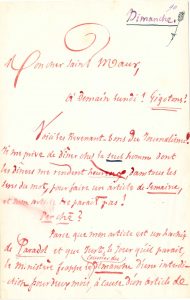 10
Dimanche.
Mon cher Saint Maur,
À Demain lundi ! Gigotons !
Voici les Revenant-bons du Journalisme !
Il me prive de dîner chez le seul homme dont
les dîners me rendent heureux dans tous les
sens du mot, pour faire un article de semaine,
et mon article ne paraît pas !
Par chè ?
Parce que mon article est un hachis
de Paradol et que Prevost, le jour qu'il paraît,
le ministère frappe
(Courrier du) Dimanche d'une interdiction
pour deux mois à cause d'un article de